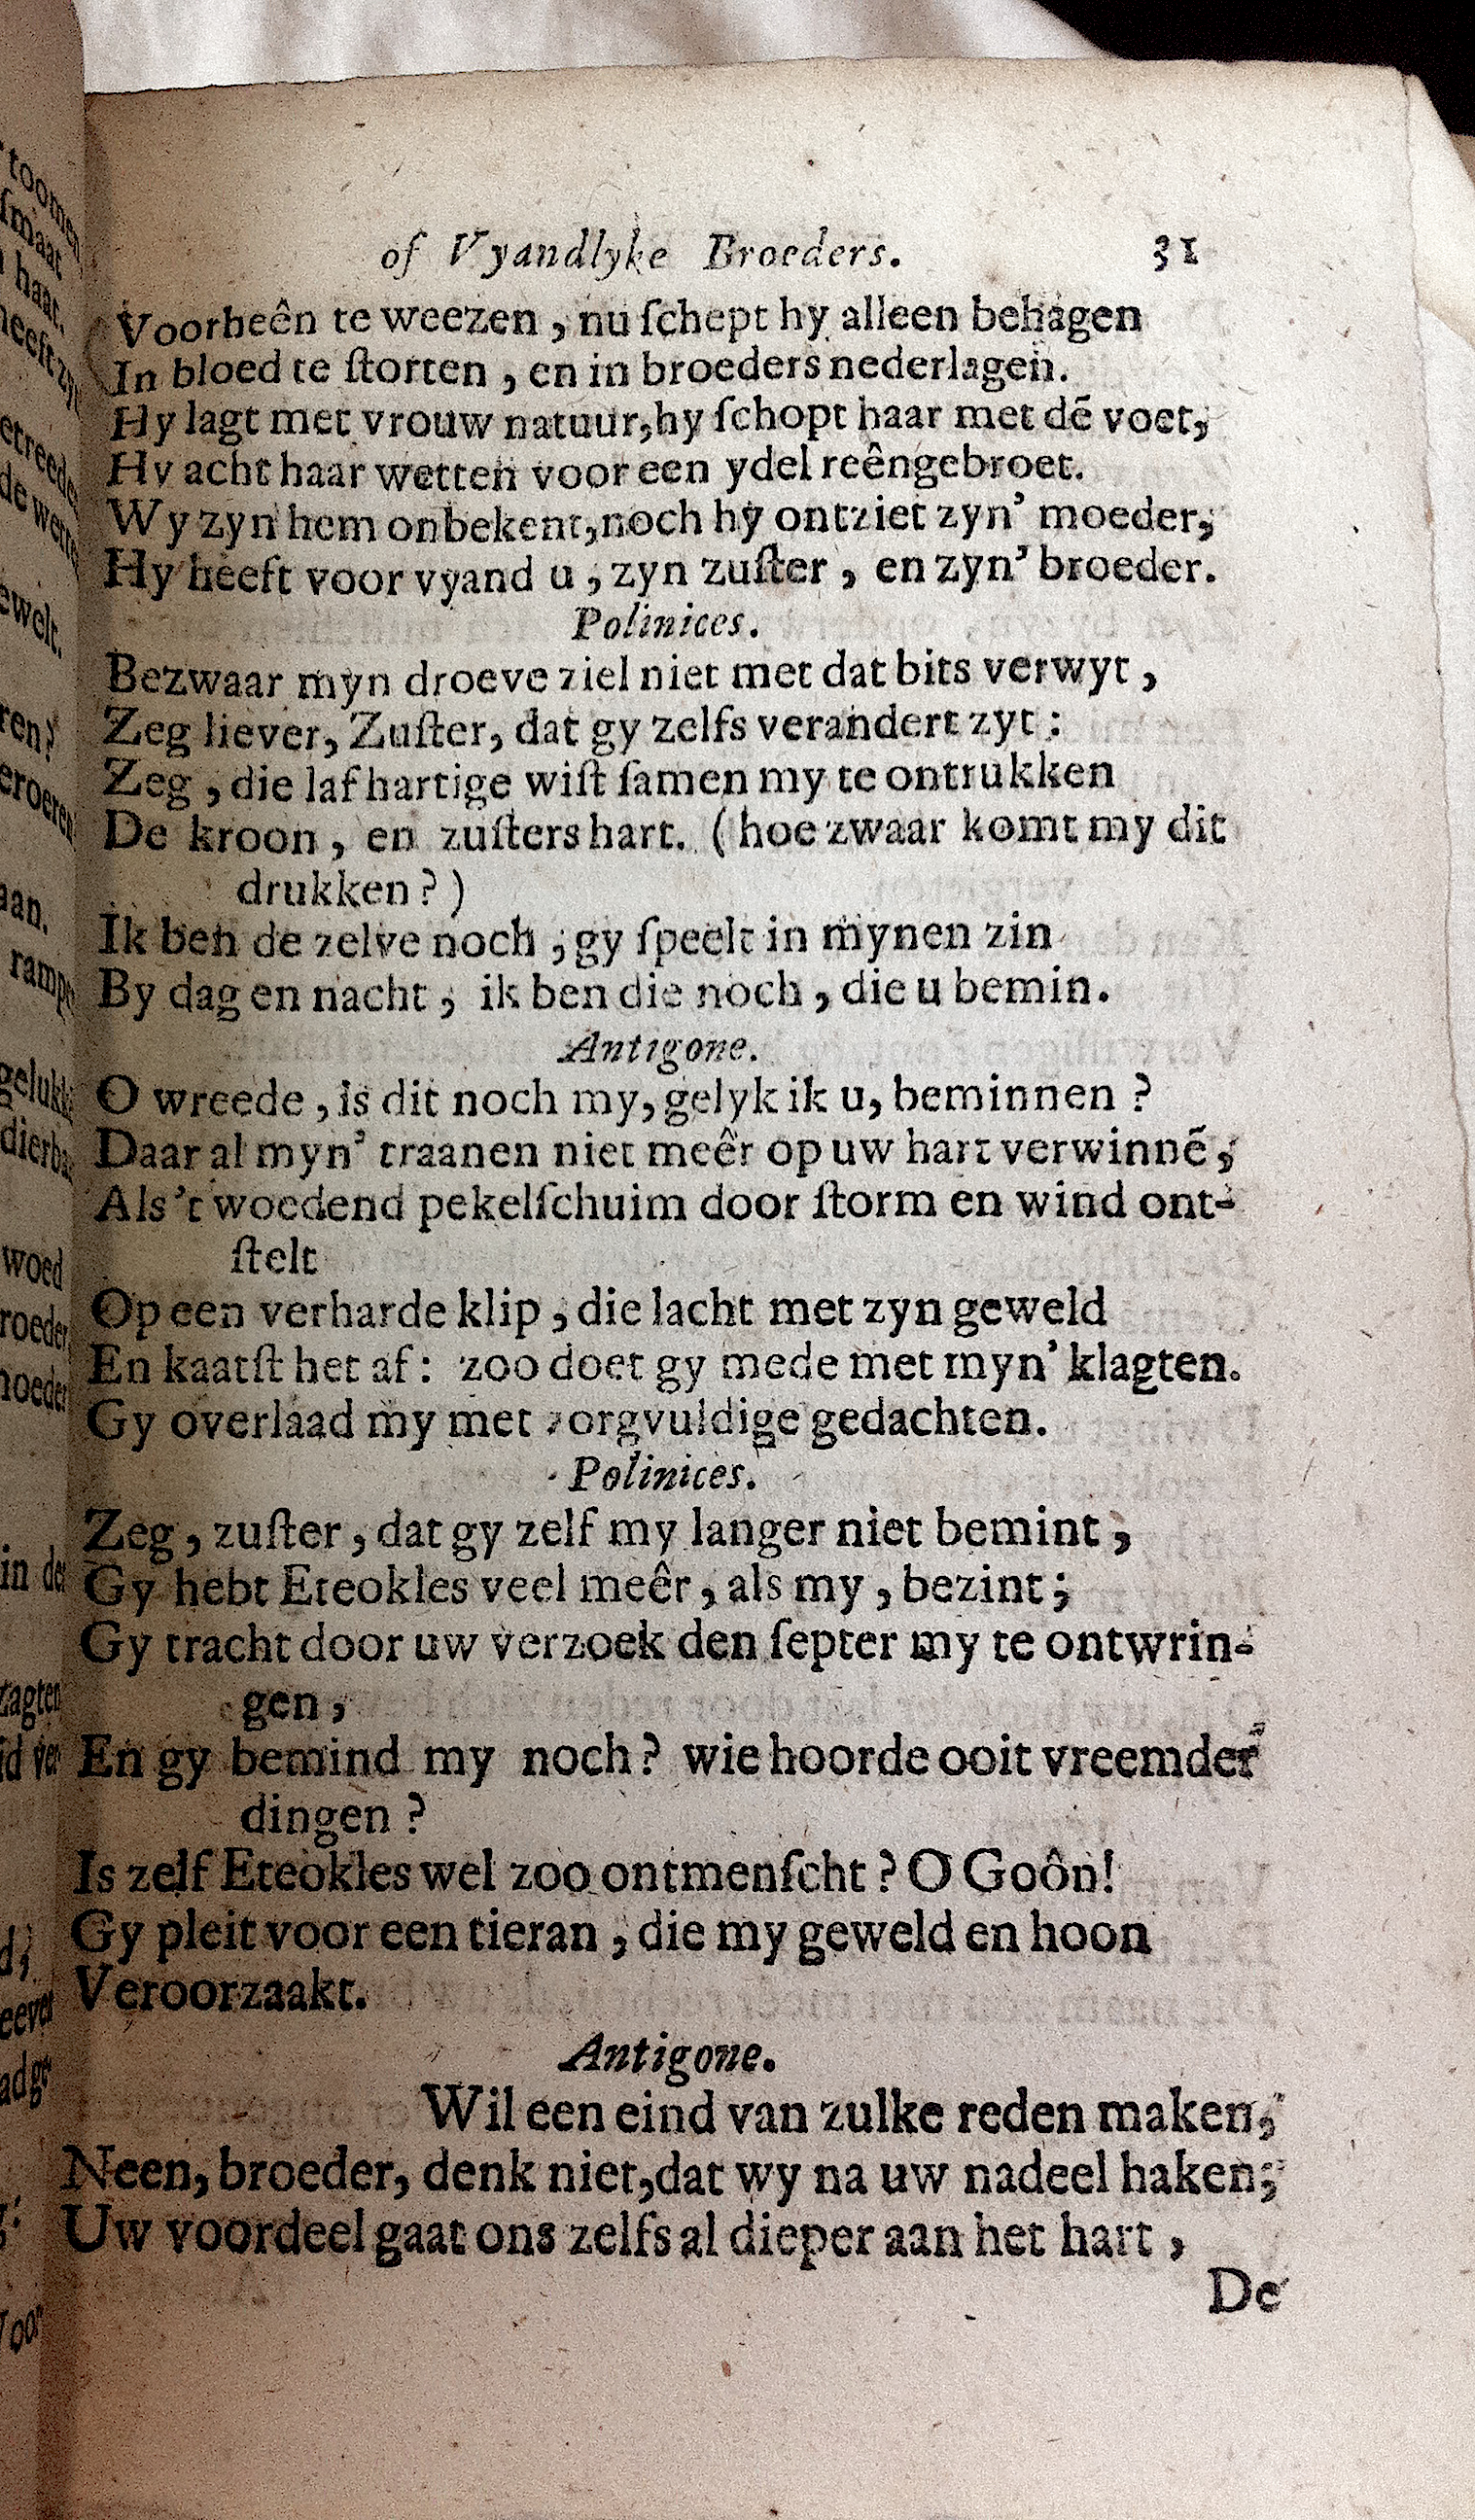 of Vyandlyke Broeders. 31
Voorheên te weezen, nu ſchept hy alleen behagen
In bloed te ſtorten, en in broeders nederlagen.
Hy lagt met vrouw natuur, hy ſchopt haar met dē voet,
Hy acht haar wetten voor een ydel reêngebroet.
Wy zyn hem onbekent, noch hy ontziet zyn' moeder,
Hy heeft voor vyand u, zyn zuſter, en zyn' broeder.
Polinices.
Bezwaar myn droeve ziel niet met dat bits verwyt,
Zeg liever, Zuſter, dat gy zelfs verandert zyt:
Zeg, die lafhartige wiſt ſamen my te ontrukken
De kroon, en zuſters hart. (hoe zwaar komt my dit
drukken?)
Ik ben de zelve noch; gy ſpeelt in mynen zin
By dag en nacht, ik ben die noch, die u bemin.
Antigone.
O wreede, is dit noch my, gelyk ik u, beminnen?
Daar al myn' traanen niet meêr op uw hart verwinnē,
Als 't woedend pekelſchuim door ſtorm en wind ont-
ſtelt
Op een verharde klip, die lacht met zyn geweld
En kaatſt het af: zoo doet gy mede met myn' klagten.
Gy overlaad my met zorgvuldige gedachten.
Polinices.
Zeg, zuſter, dat gy zelf my langer niet bemint,
Gy hebt Eteokles veel meêr, als my, bezint;
Gy tracht door uw verzoek den ſepter my te ontwrin-
gen,
En gy bemind my noch? wie hoorde ooit vreemder
dingen?
Is zelf Eteokles wel zoo ontmenſcht? O Goôn!
Gy pleit voor een tieran, die my geweld en hoon
Veroorzaakt.
Antigone.
Wil een eind van zulke reden maken,
Neen, broeder, denk niet, dat wy na uw nadeel haken;
Uw voordeel gaat ons zelfs al dieper aan het hart,
De